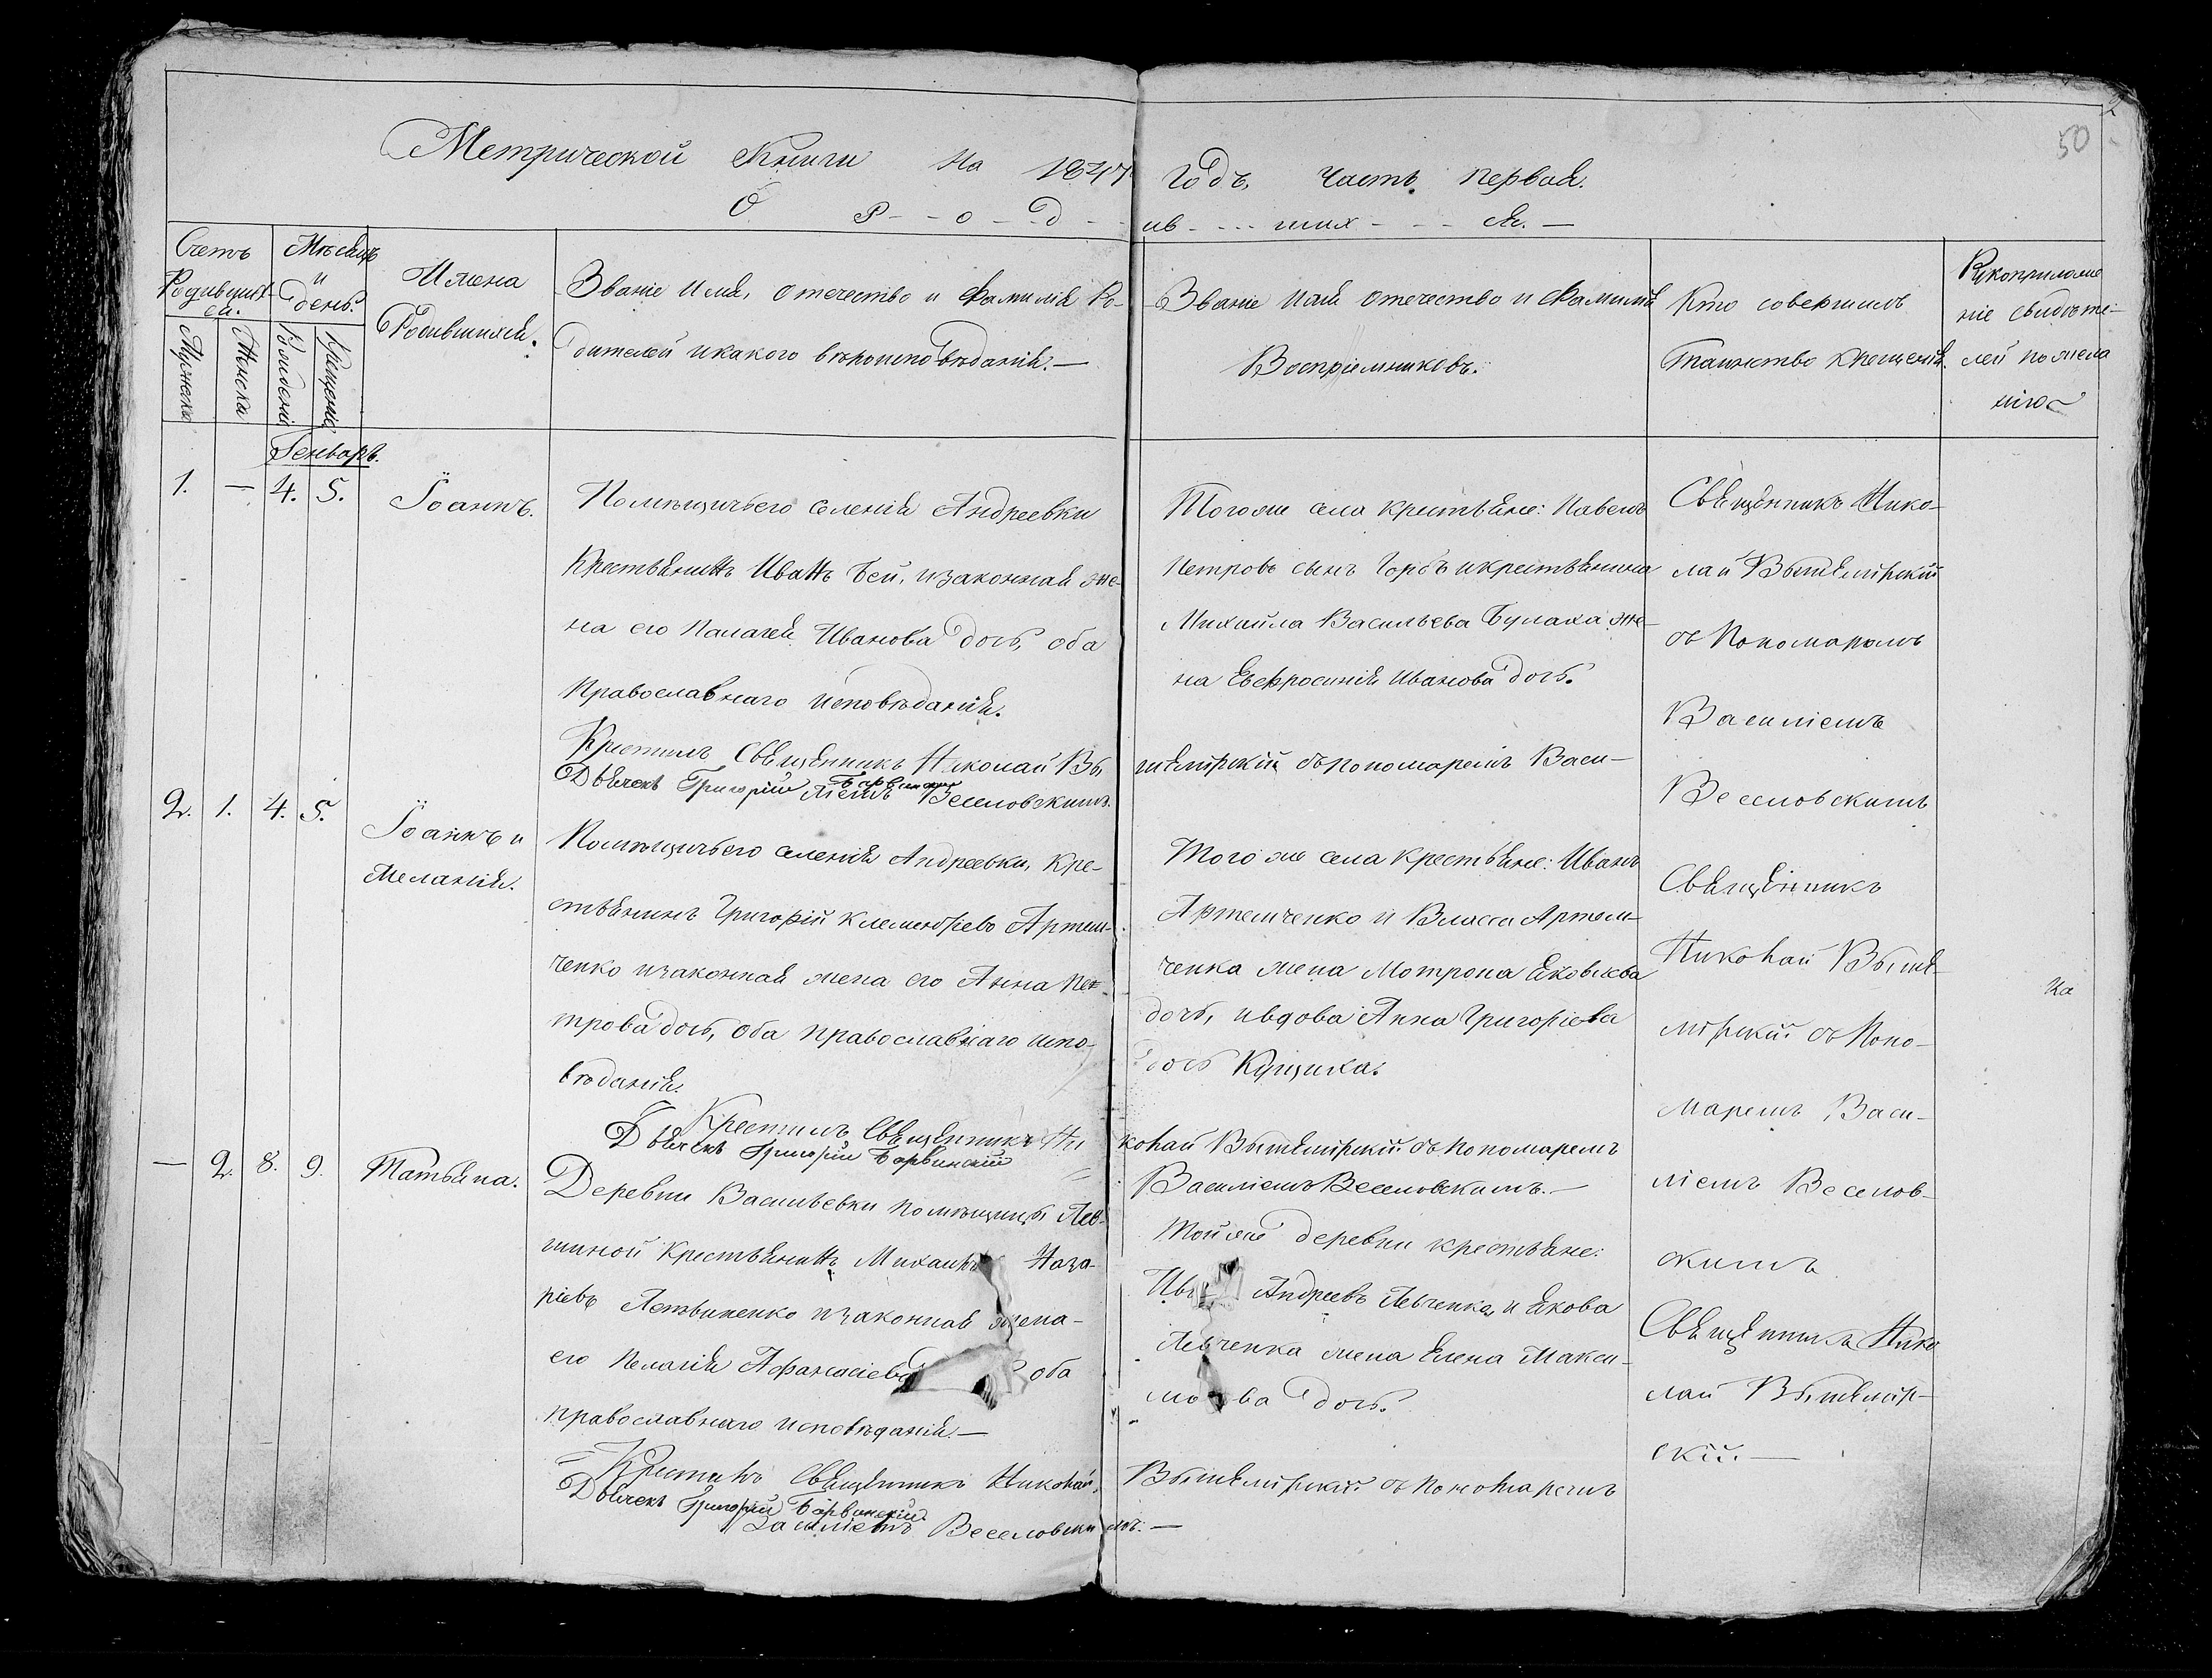 50
Метрической Книги на 1847 Годъ, часть первая.
О Р - - о - д - - ив - - - ших - - - ся. —
Счетъ
Родивших-
ся.
Мужеска
Женска
Мѣсяцъ
и
день.
Рожденія
Крещенія
Имена
Родившихся.
Званіе имя, отечество и фамилія Ро-
дителей и какого вѣроисповѣданія. —
Званіе имя отечество и фамилія
Воспріемниковъ.
Кто совершилъ
Таинство крещенія.
Рукоприложе
ніе свидѣте-
лей по жела
нію
Генварь.
1. — 4. 5.
Іоаннъ.
Помѣщичьего селенія Андреевки
Крестьянинъ Иванъ Бей, и законная же-
на его Палагея Иванова дочь, оба
Православнаго исповѣданія.
Крестилъ Священникъ Николай Вы
шемірскій съ пономаремъ Васи-
Дьячекъ Григорій Барвинскій
ліемъ Веселовскимъ.
Тогоже села крестьяне: Павелъ
Петровъ сынъ Горбъ и крестьянина
Михайла Васильева Булаха же-
на Евфросинія Иванова дочь.
Священникъ Нико-
лай Вышемірскій
съ Пономаремъ
Василіемъ
Веселовскимъ
2. 1. 4. 5.
Іоаннъ и
Меланія.
Помѣщичьего селенія Андреевки, Кре-
стьянинъ Григорій Клементіевъ Артем-
ченко и законная жена его Анна Пе-
трова дочь, оба православнаго испо-
вѣданія.
Крестилъ Священникъ Ни
колай Вышемірскій съ пономаремъ
Дьячекъ Григорій Барвинскій
Василіемъ Веселовскимъ. —
Того же села Крестьяне: Иванъ
Артемченко и Власа Артем-
ченка жена Мотрона Яковлева
дочь, и вдова Анна Григоріева
дочь Кущиха.
Священникъ
Николай Выше-
мірскій съ Поно-
маремъ Васи-
ліемъ Веселов-
скимъ
— 2. 8. 9.
Татьяна.
Деревни Васильевки помѣщицы Лев-
шиной Крестьянинъ Михаилъ Наза-
ріевъ Литвиненко и законная жена
его Пелагія Афанасіева оба
православнаго исповѣданія. —
Крестилъ Священникъ Николай
Вышемірскій съ Пономаремъ
Дьячекъ Григорій Барвинскій.
Василіемъ Веселовскимъ. —
Той же деревни крестьяне:
Андреевъ Левченко, и Якова
Левченка жена Елена Макси-
мова дочь.
Священникъ Нико
лай Вышемір-
скій. —
на